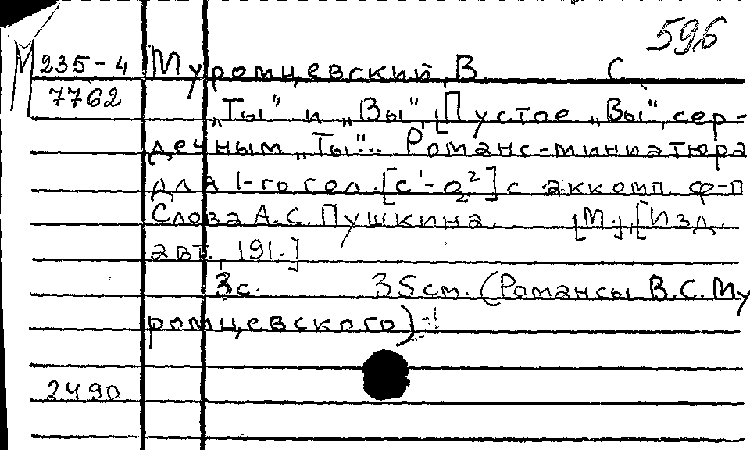 596
М 235-4 Муромцевский, В. С.
7762 „Ты" и „Вы", [Пустое „Вы", сер-
дечным „Ты"... Романс-миниатюра
для 1-го гол. [c¹-g²] с аккомп. ф-п
Слова А.С. Пушкина. [М.], [Изд.
авт., 191.]
3с. 35см. (Романсы В.С. Му
ромцевского)
2490